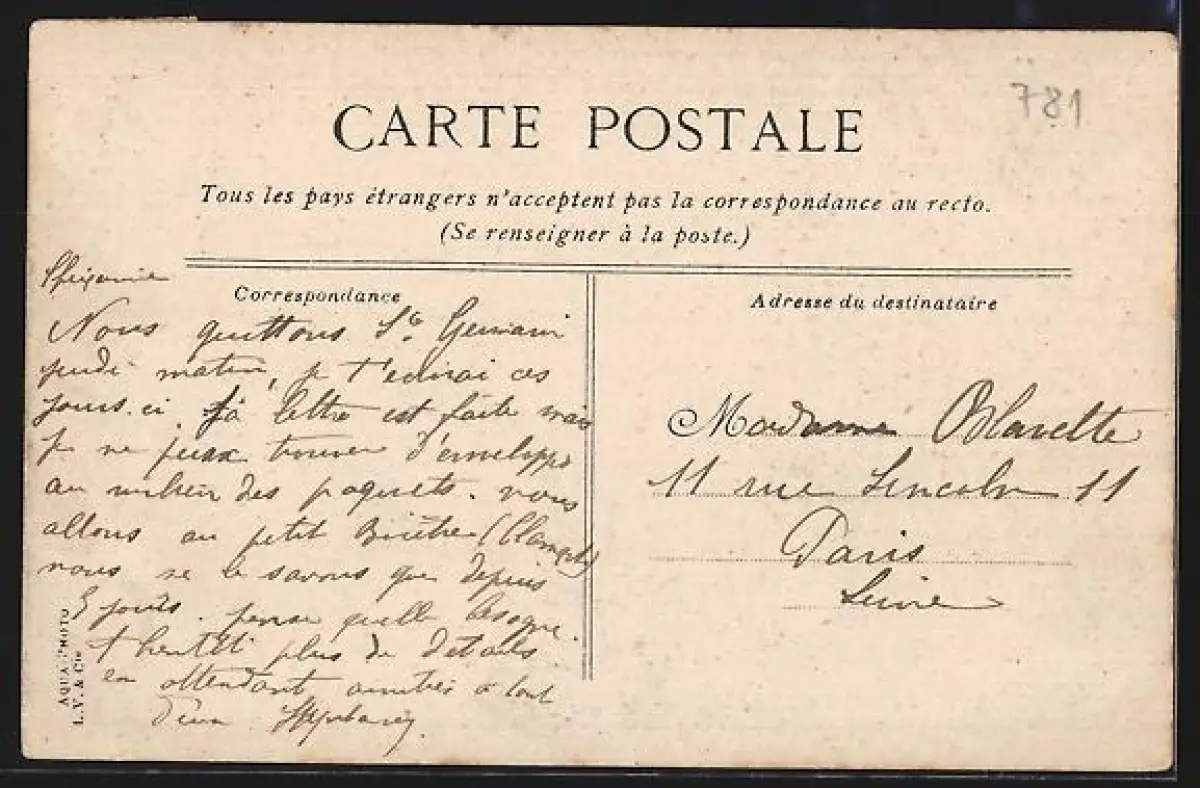 781
CARTE POSTALE
Tous les pays étrangers n'acceptent pas la correspondance au recto.
(Se renseigner à la poste.)
Correspondance
Nous quittons St Germain
jeudi matin, je t'écrirai ces
jours-ci. la lettre est faite mais
je ne peux trouver d'enveloppe
au milieu des paquets. nous
allons au petit Bicêtre (Clamart)
nous ne le savons que depuis
jours. pense quelle besogne.
bientôt plus de détails
en attendant amitiés à tout
AQUA PHOTO
L.V. & Cie
Adresse du destinataire
Madame Blavette
11 rue Lincoln 11
Paris
Seine